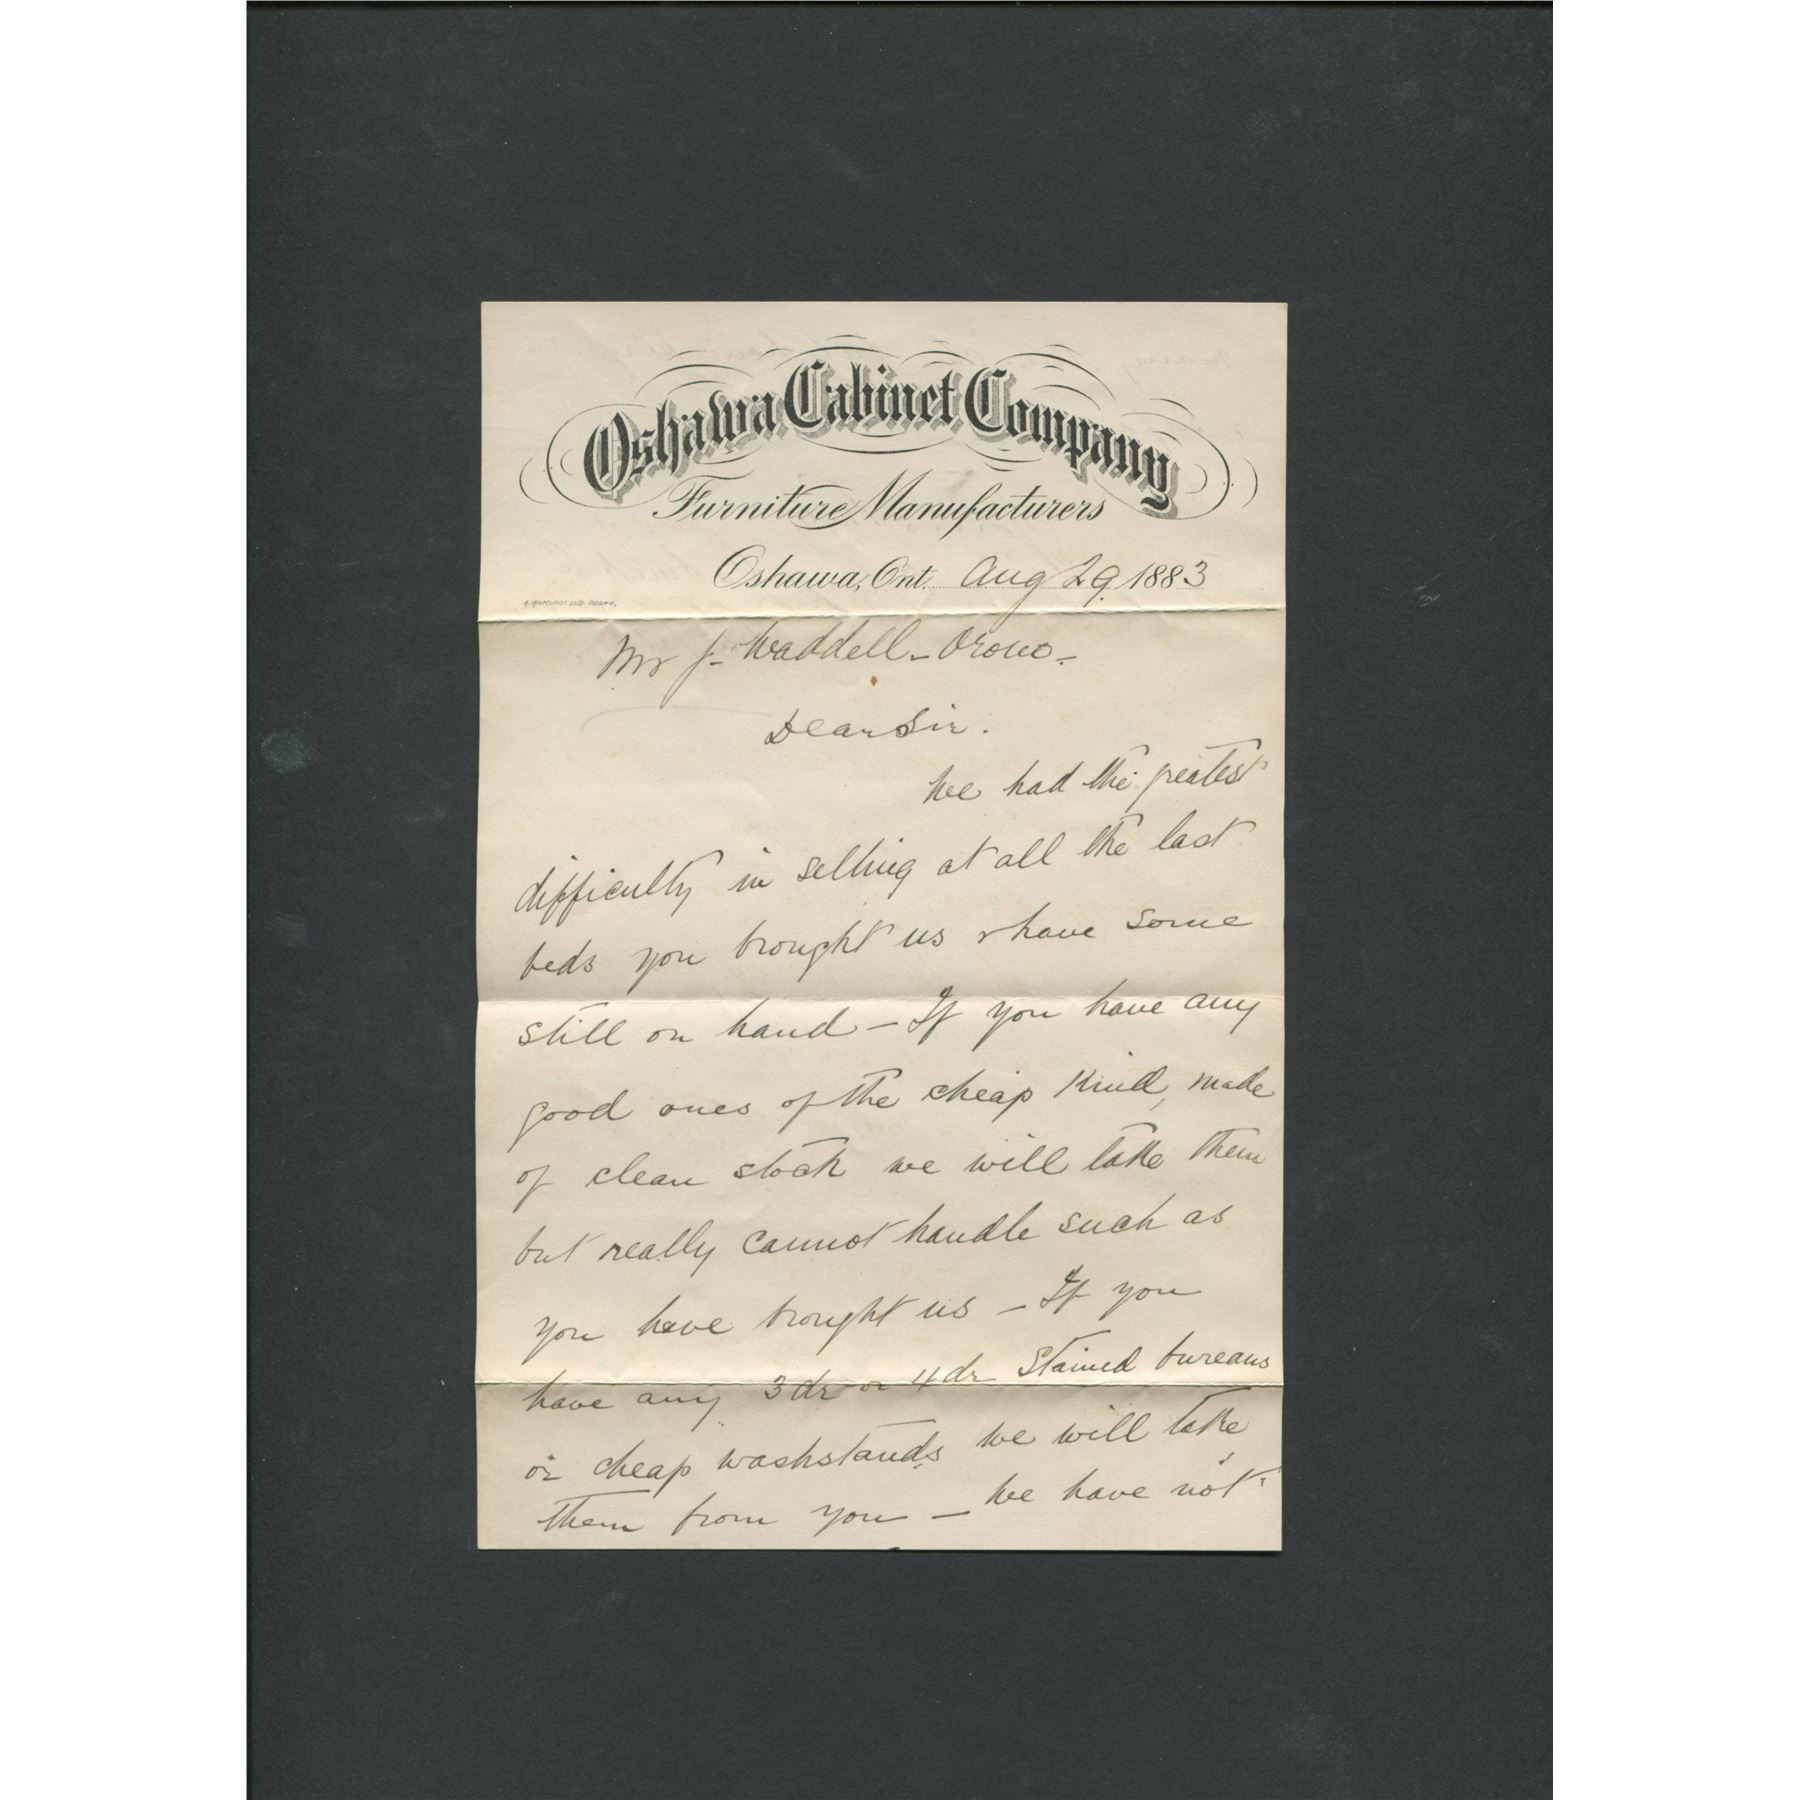 Oshawa Cabinet Company
Furniture Manufacturers
Oshawa, Ont. Aug 29 1883
Mr J- Waddell - Orono -
Dear Sir.
We had the greatest
difficulty in selling at all the last
beds you brought us & have some
still on hand - If you have any
good ones of the cheap kind, made
of clean stock we will take them
but really cannot handle such as
you have brought us - If you
have any 3 dr or 4 dr stained bureaus
or cheap washstands we will take
them from you - We have not